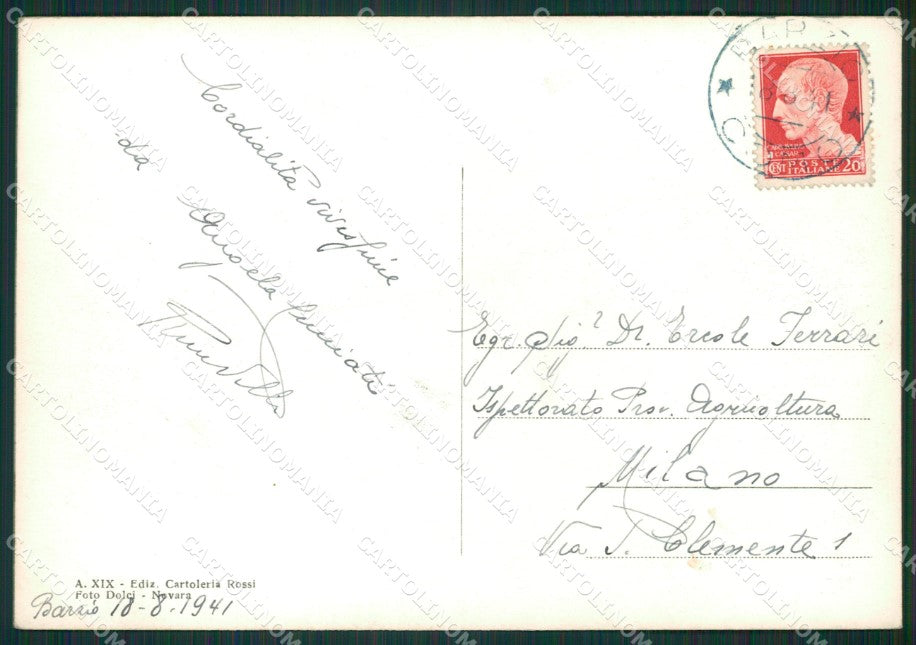 Cordialità vivissime
da
Angela
Egr. Sig.r Dr. Ercole Ferrari
Ispettorato Prov. Agricoltura
Milano
Via S. Clemente 1
A. XIX - Ediz. Cartoleria Rossi
Foto Dolci - Novara
Barzio 18-8-1941
POSTE
ITALIANE
CENT 20
CARTOLINOMANIA